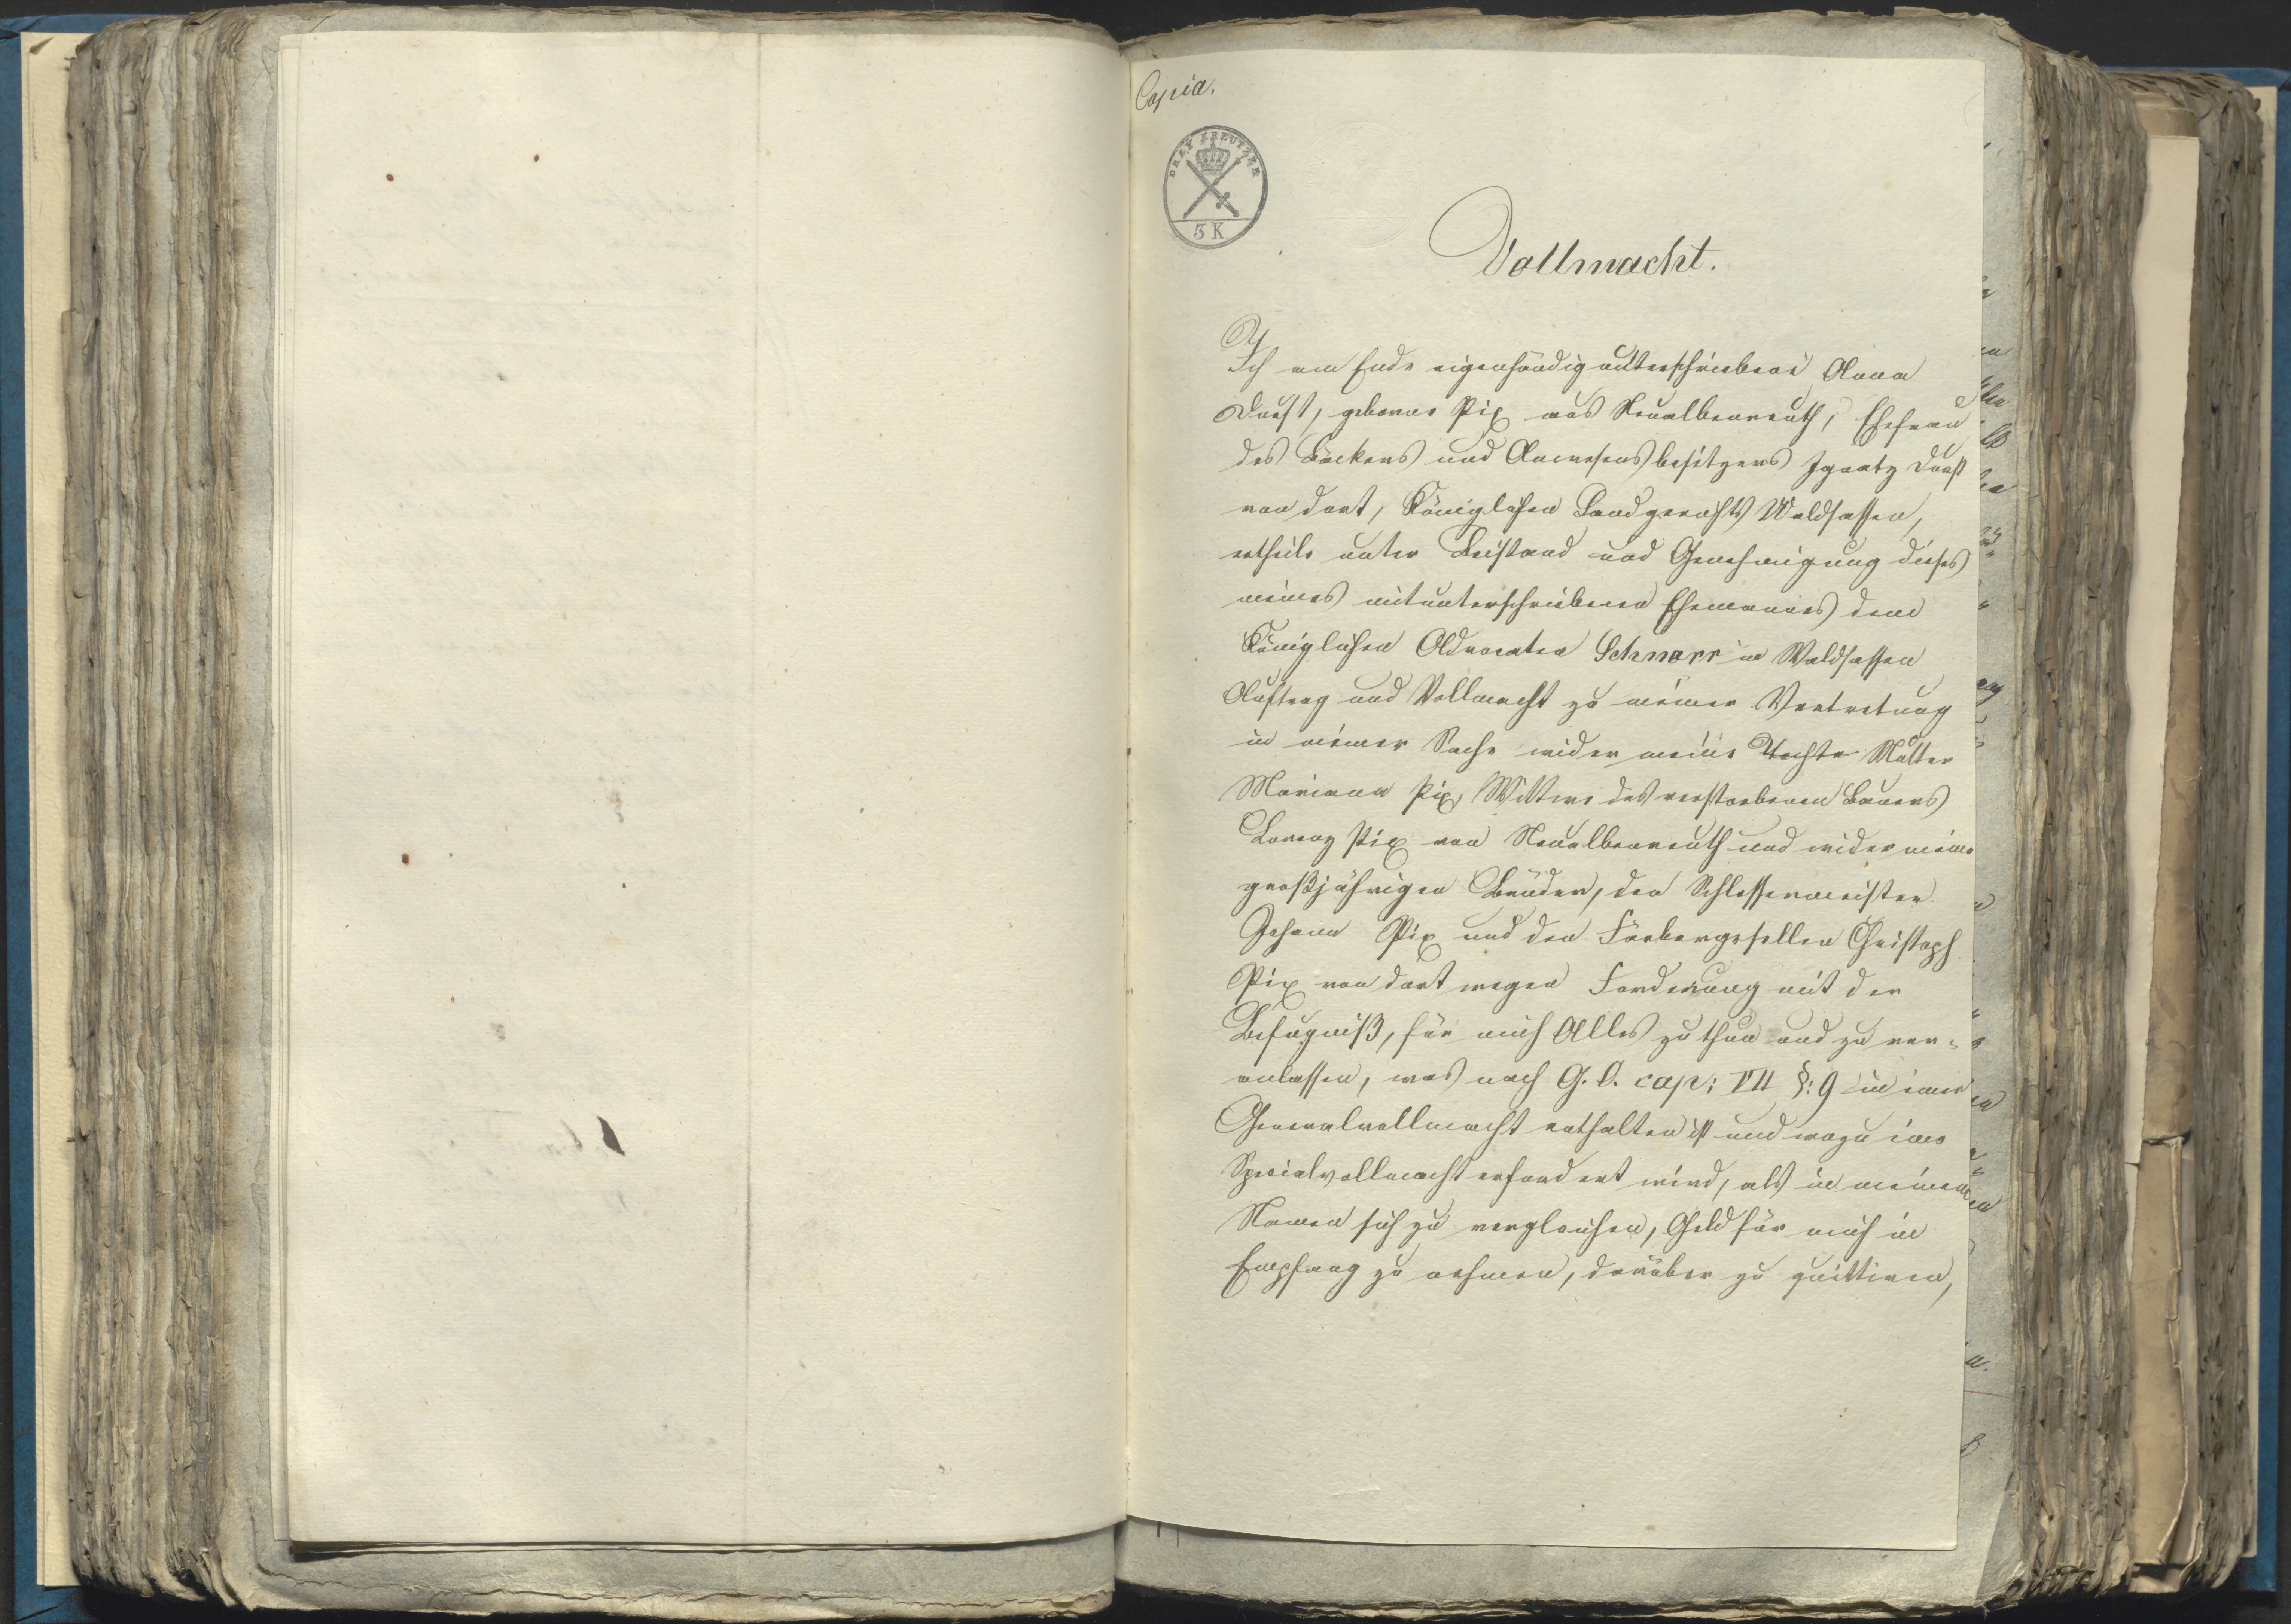 Copia.
DREY KREUTZER
3 K
Vollmacht.
Ich am Ende eigenhändig unterschriebene Anna
Dürst, geborne Pix aus Neualbenreuth, Ehefrau
des Bäckers und Anwesensbesitzers Ignatz Dürst
von dort, Königlichen Landgerichts Waldsassen,
ertheile unter Beistand und Genehmigung dieses
meines mitunterschriebenen Ehemannes dem
Königlichen Advocaten Schnorr in Waldsassen
Auftrag und Vollmacht zu meiner Vertretung
in meiner Sache wider meine Mutter
Mariana Pix, Wittwe des verstorbenen Bauers
Lorenz Pix von Neualbenreuth und wider meine
großjährigen Brüder, den Schlossermeister
Johann Pix und den Färbergesellen Christoph
Pix von dort wegen Forderung mit der
Befugniß, für mich Alles zu thun und zu ver-
anlassen, was nach G. O. cap: VII §: 9 in einer
Generalvollmacht enthalten ist und wozu eine
Specialvollmacht erfordert wird, als in meinem
Namen sich zu vergleichen, Geld für mich in
Empfang zu nehmen, darüber zu quittiren,